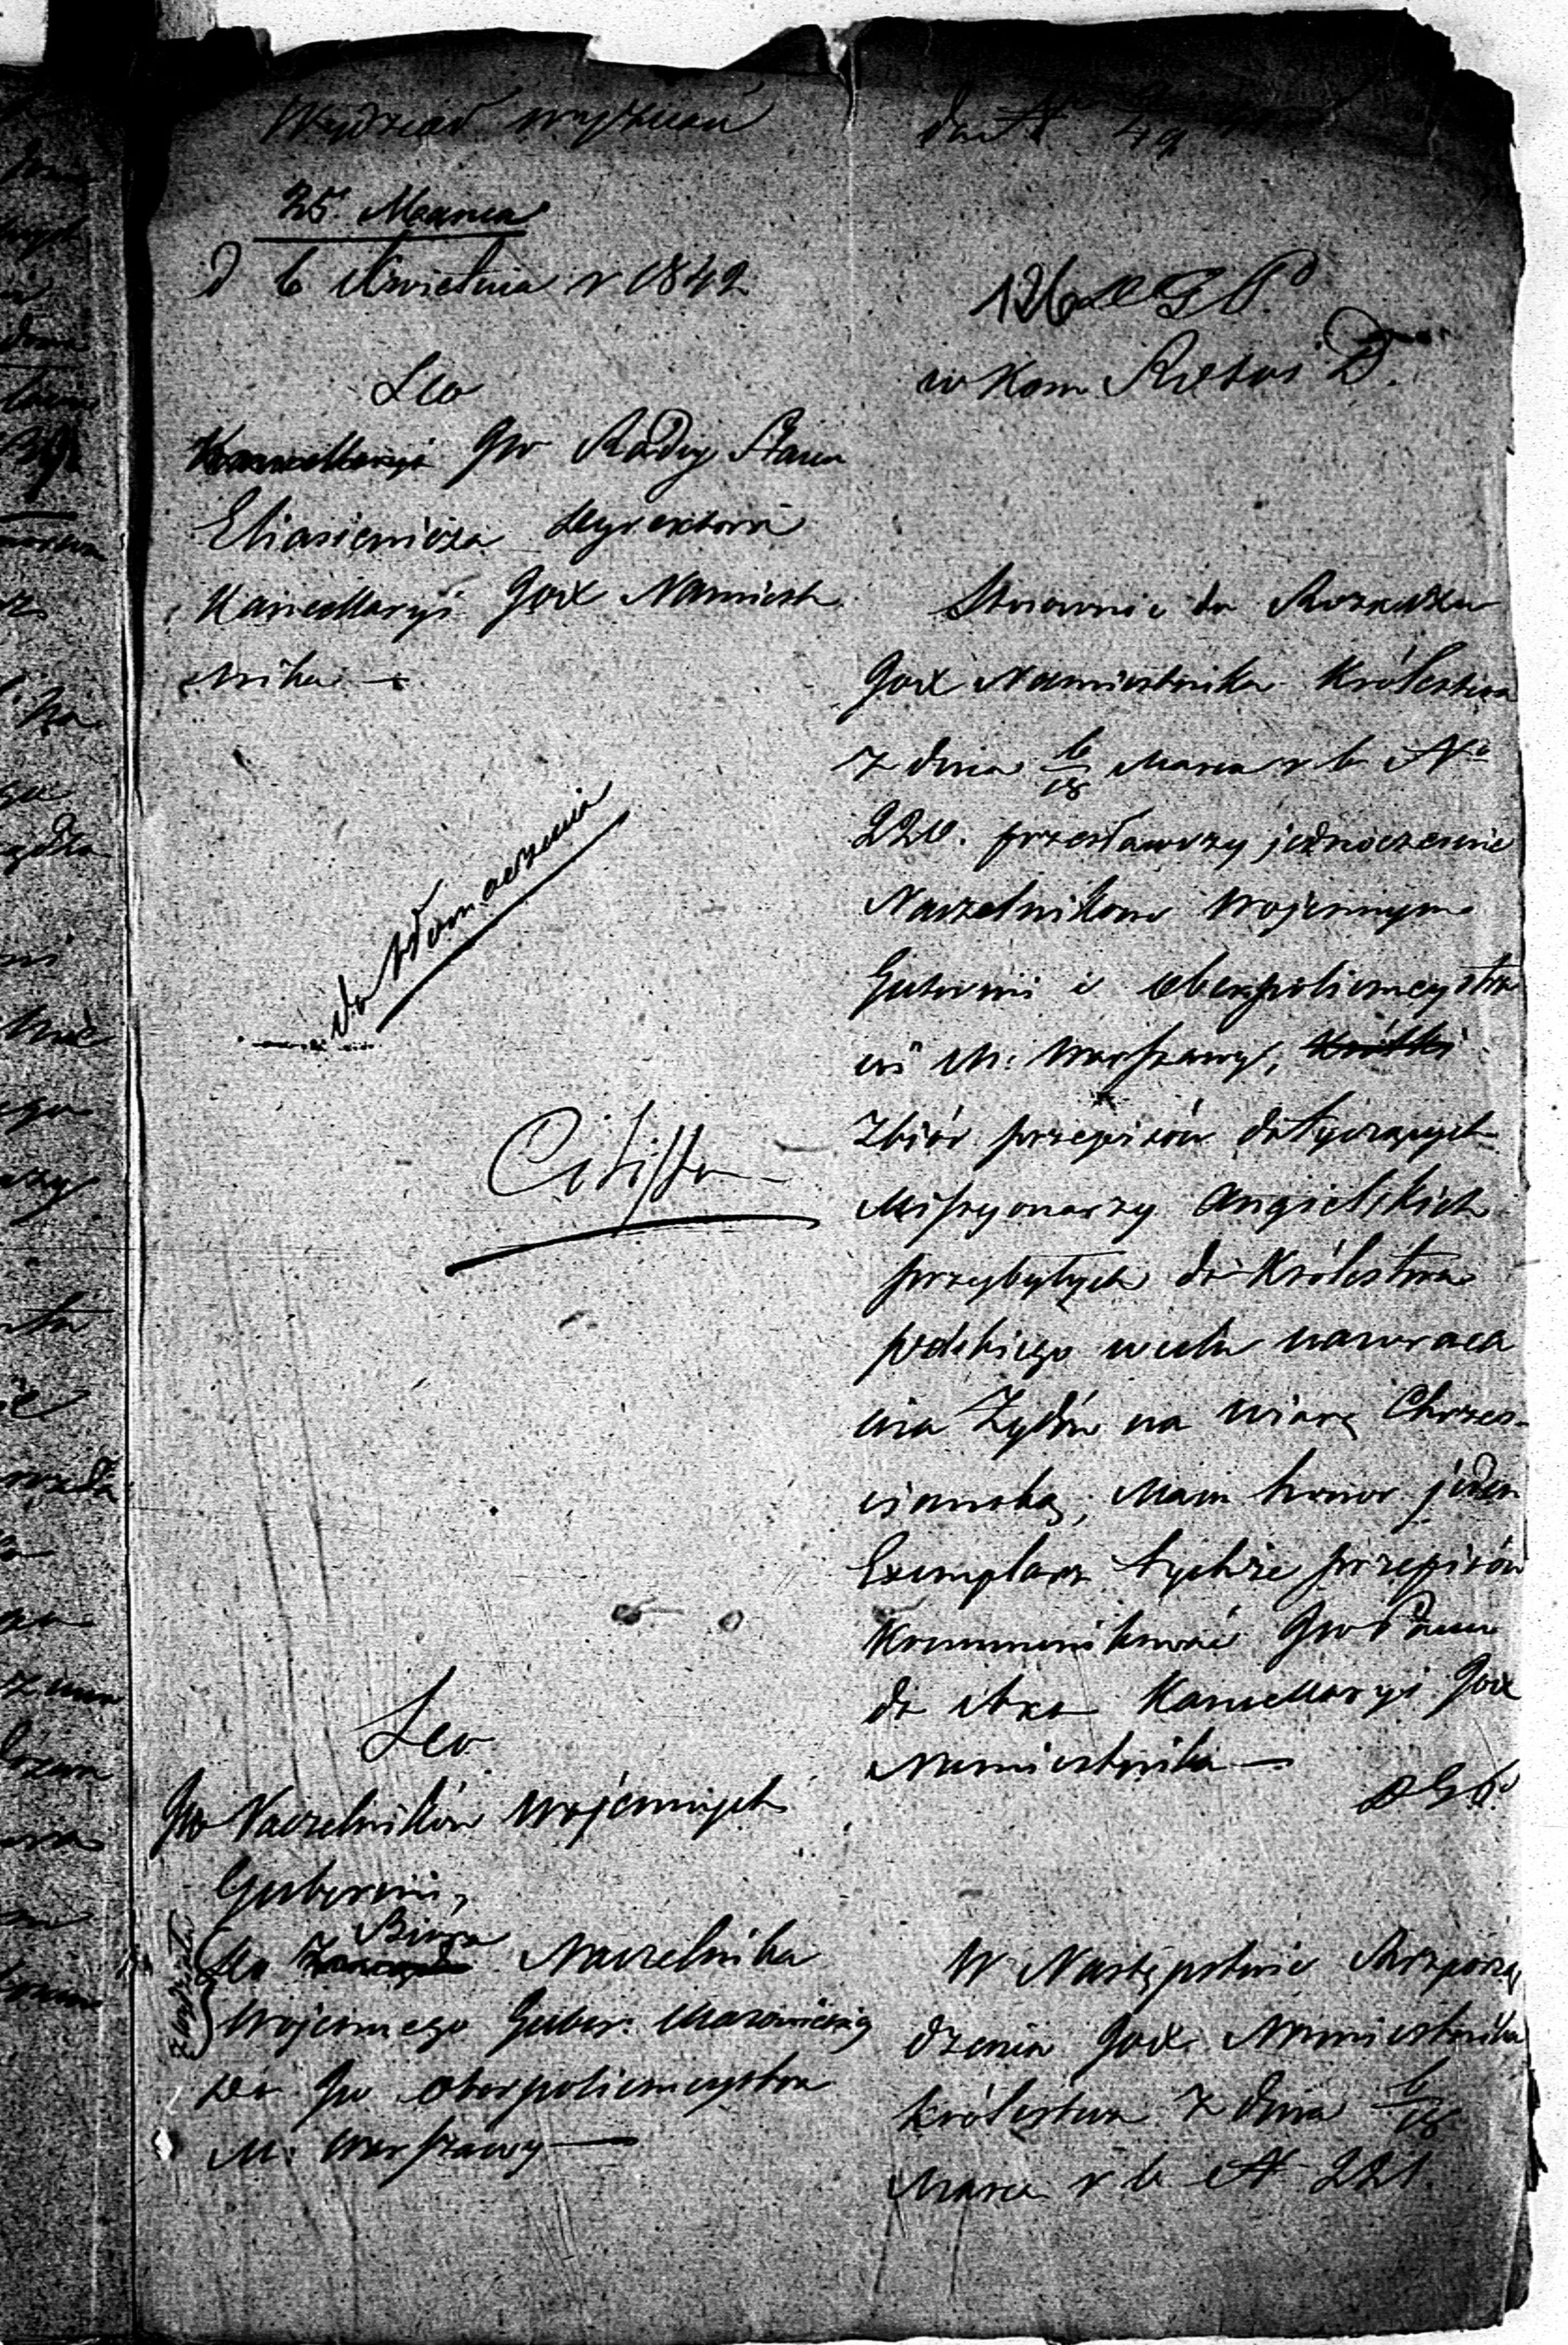 Wydział wyznań
25. Marca
d 6 Kwietnia r 1842
Do
JW Radcy Stanu
Eliasiewicza Dyrektora
Kancellaryi JOX Namiest
nika —
do tłomaczenia
Citissime
Do
JW Naczelników Wojennych
Gubernii,
Do Biura Naczelnika
Wojennego Guber: Mazowieckiej
do JW Oberpolicmeystra
M: Warszawy —
do N
126 D G P.
w Kom
Stosownie do Rozkazu
JOX Namiestnika Królestwa
z dnia 6/18 Marca r b No
221. przesławszy jednocześnie
Naczelnikom Wojennym
Gubernii i Oberpolicmeystro
wi M: Warszawy, Krótki
Zbiór przepisów dotyczących
Missyonarzy Angielskich
przybyłych do Królestwa
polskiego w celu nawraca
nia Żydów na wiarę Chrześ-
ciańską; Mam honor jeden
Exemplarz tychże przepisów
Kommunikować JW Panu
do Kancellaryi JOX
Namiestnika —
D G P.
W Następstwie Rozporzą
dzenia JOX. Namiestnika
Królestwa z dnia 6/18
Marca r b N 221.